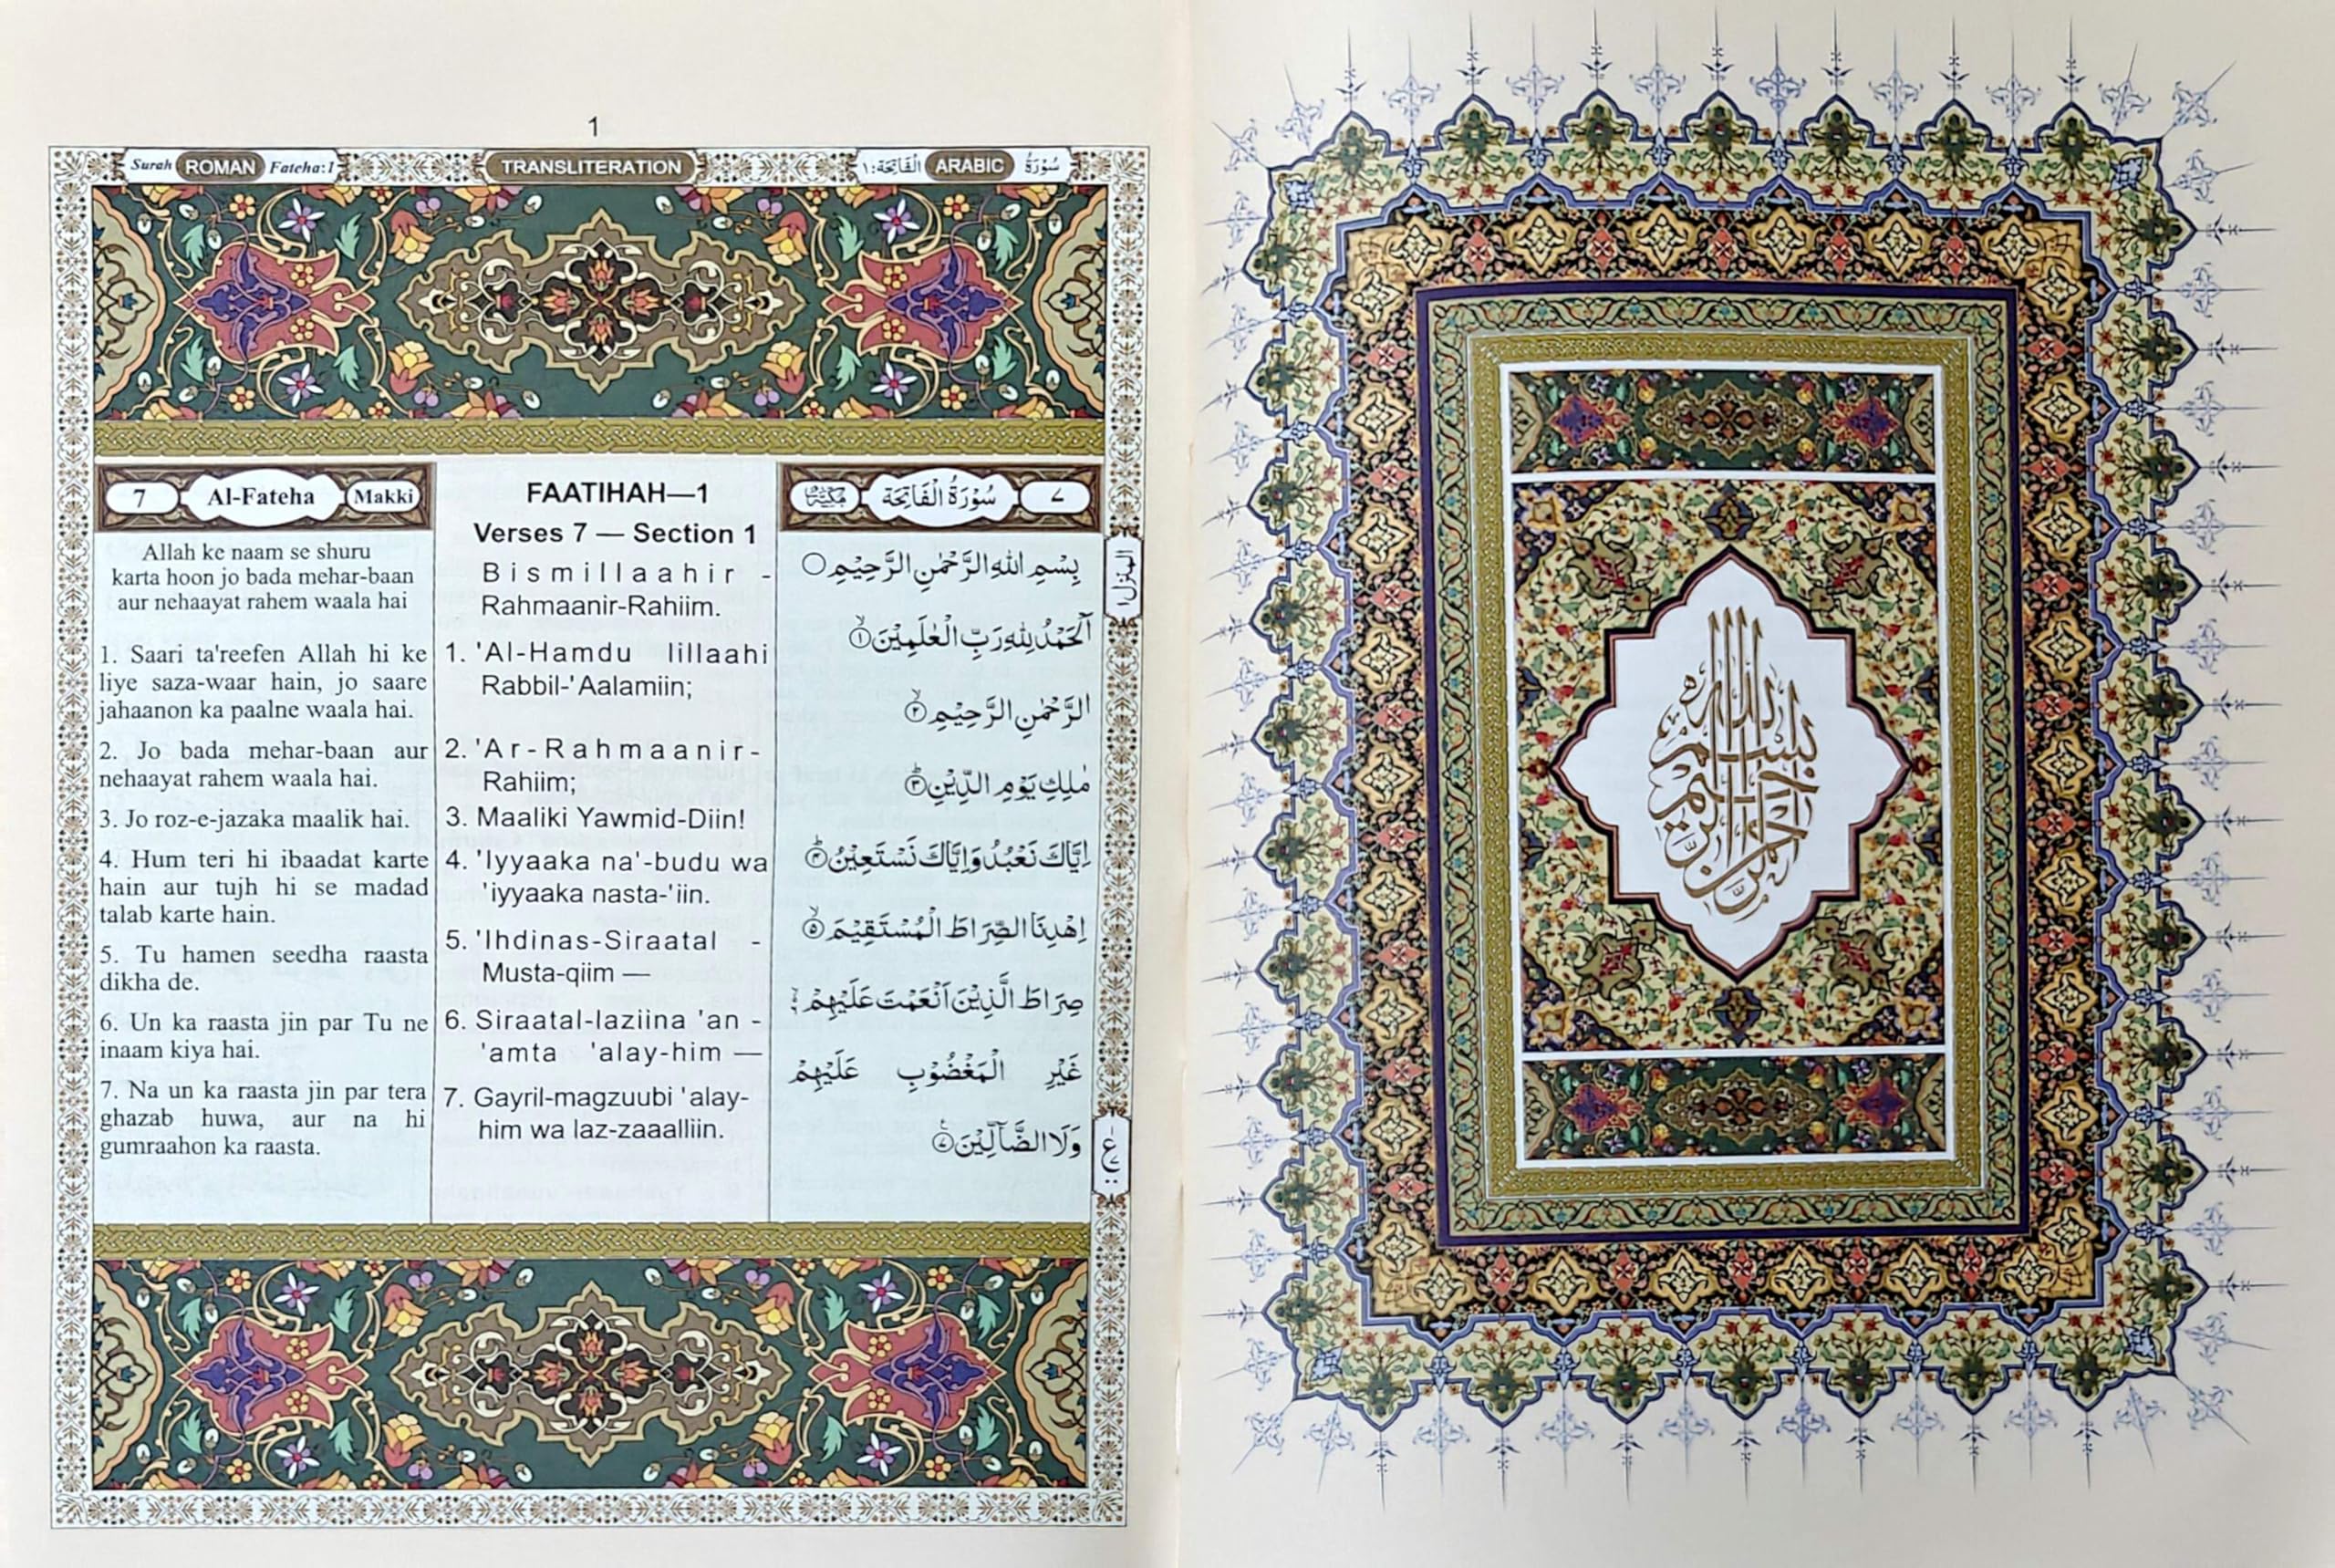 1
Surah ROMAN Fateha:1
TRANSLITERATION
الْفَاتِحَة:١ ARABIC سُوْرَةُ
7 Al-Fateha Makki
Allah ke naam se shuru
karta hoon jo bada mehar-baan
aur nehaayat rahem waala hai
1. Saari ta'reefen Allah hi ke
liye saza-waar hain, jo saare
jahaanon ka paalne waala hai.
2. Jo bada mehar-baan aur
nehaayat rahem waala hai.
3. Jo roz-e-jazaka maalik hai.
4. Hum teri hi ibaadat karte
hain aur tujh hi se madad
talab karte hain.
5. Tu hamen seedha raasta
dikha de.
6. Un ka raasta jin par Tu ne
inaam kiya hai.
7. Na un ka raasta jin par tera
ghazab huwa, aur na hi
gumraahon ka raasta.
FAATIHAH—1
Verses 7 — Section 1
Bismillaahir -
Rahmaanir-Rahiim.
1. 'Al-Hamdu lillaahi
Rabbil-'Aalamiin;
2. 'Ar-Rahmaanir-
Rahiim;
3. Maaliki Yawmid-Diin!
4. 'Iyyaaka na'-budu wa
'iyyaaka nasta-'iin.
5. 'Ihdinas-Siraatal -
Musta-qiim —
6. Siraatal-laziina 'an -
'amta 'alay-him —
7. Gayril-magzuubi 'alay-
him wa laz-zaaalliin.
٧ سُوْرَةُ الْفَاتِحَة مَكِّيَّة
بِسْمِ اللّٰهِ الرَّحْمٰنِ الرَّحِيْمِ ○
اَلْحَمْدُ لِلّٰهِ رَبِّ الْعٰلَمِيْنَ ۙ١
الرَّحْمٰنِ الرَّحِيْمِ ۙ٢
مٰلِكِ يَوْمِ الدِّيْنِ ؕ٣
اِيَّاكَ نَعْبُدُ وَاِيَّاكَ نَسْتَعِيْنُ ؕ۴
اِهْدِنَا الصِّرَاطَ الْمُسْتَقِيْمَ ۙ۵
صِرَاطَ الَّذِيْنَ اَنْعَمْتَ عَلَيْهِمْ
غَيْرِ الْمَغْضُوْبِ عَلَيْهِمْ
وَلَا الضَّآلِّيْنَ ٧
المنزل١
ع
بسم الله الرحمن الرحيم